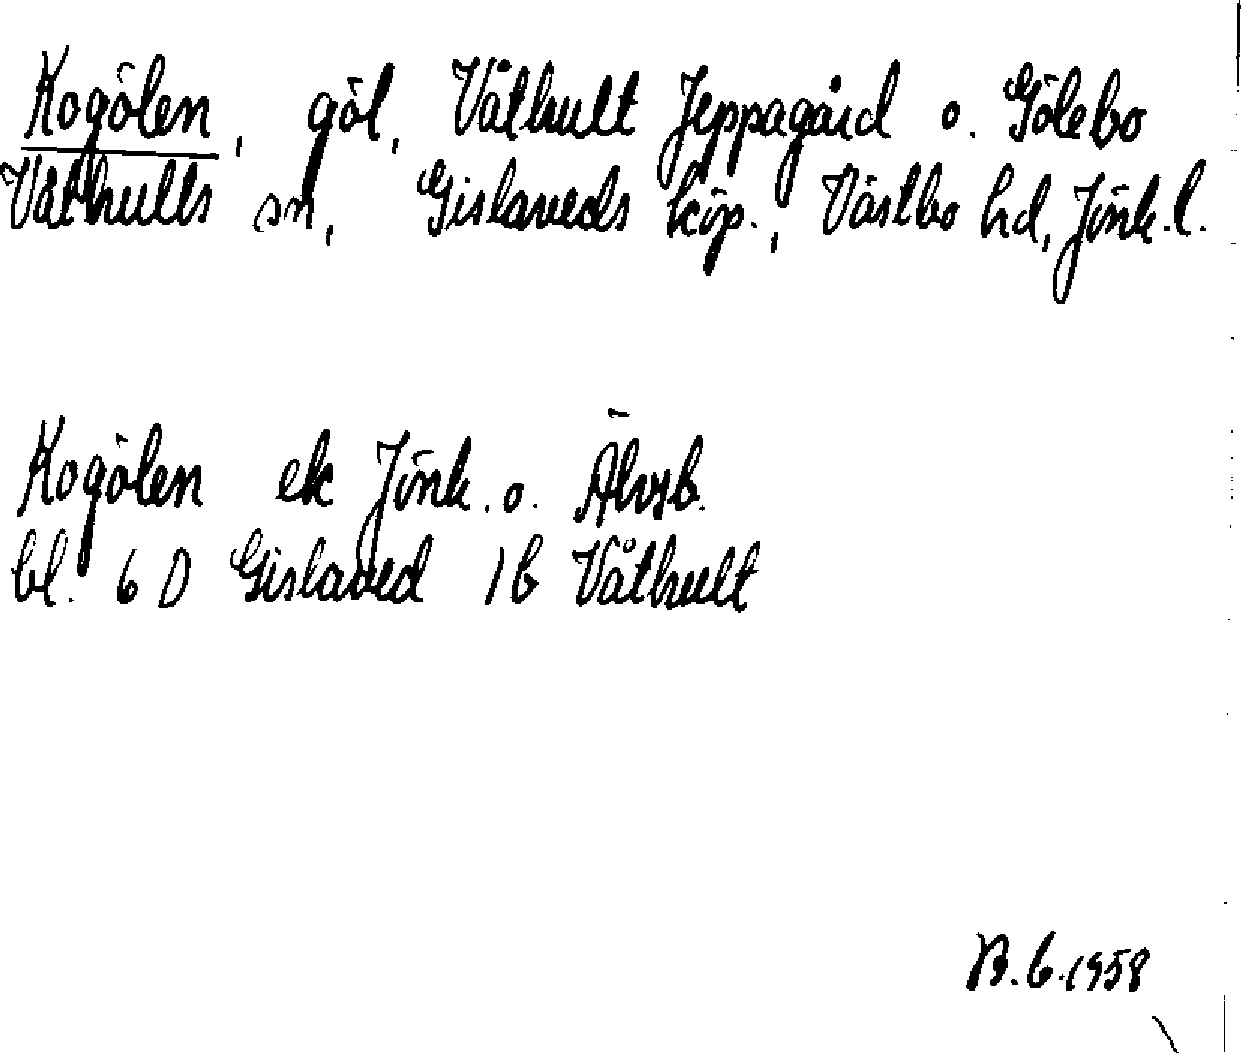 Kogölen, göl, Våthult Jeppagård o. Gölebo
Våthults sn, Gislaveds köp., Västbo hd, Jönk.l.
Kogölen ek Jönk. o. Älvsb.
bl. 6 D Gislaved 1b Våthult
B.G.1958